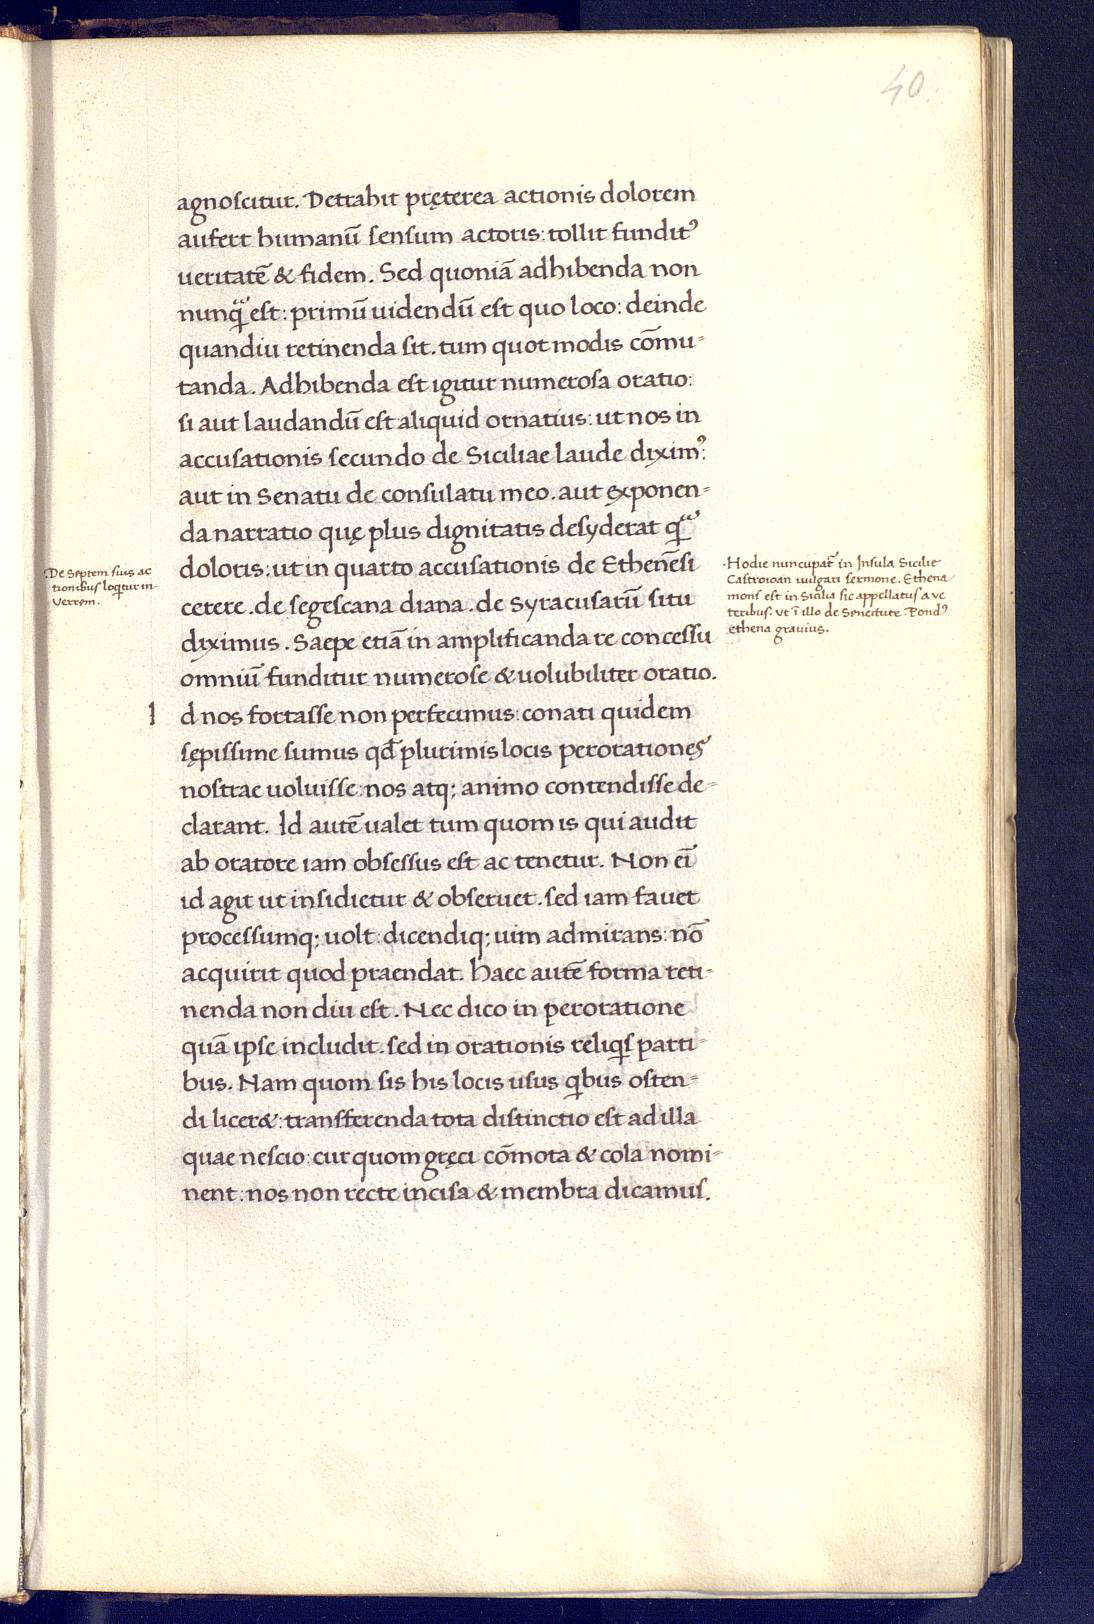 40.
agnoscitur. Detrahit pręterea actionis dolorem
aufert humanū sensum actoris: tollit fundit⁹
ueritatē & fidem. Sed quoniā adhibenda non
nunqᷓ est: primū uidendū est quo loco: deinde
quandiu retinenda sit. tum quot modis cōmu-
tanda. Adhibenda est igitur numerosa oratio:
si aut laudandū est aliquid ornatius: ut nos in
accusationis secundo de Siciliae laude diximꝰ:
aut in Senatu de consulatu meo. aut exponen-
da narratio quę plus dignitatis desyderat qᷓ
doloris: ut in quarto accusationis de Ethenēsi
cerere. de segescana diana. de Syracusarū situ
diximus. Saepe etiā in amplificanda re concessu
omniū funditur numerose & uolubiliter oratio.
Id nos fortasse non perfecimus: conati quidem
sępissime sumus qđ plurimis locis perorationes
nostrae uoluisse: nos atq; animo contendisse de-
clarant. Id autē ualet tum quom is qui audit
ab oratore iam obsessus est ac tenetur. Non ei̅
id agit ut insidietur & obseruet. sed iam fauet
processumq; uolt: dicendiq; uim admirans: nō
acquirit quod praendat. Haec autē forma reti-
nenda non diu est. Nec dico in peroratione
quā ipse includit. sed in orationis reliqis parti-
bus. Nam quom sis his locis usus qibus osten-
di licer&: transferenda tota distinctio est ad illa
quae nescio cur quom gręci cōmota & cola nomi-
nent: nos non recte incisa & membra dicamus.
De septem suis ac
tionibus loqitur in
Verrem.
Hodie nuncupat᷑ in Insula Sicilie
Castroioan uulgari sermone. Ethena
mons est in Sicilia sic appellatus a ue
teribus. ut ī illo de Senectute. Pondꝰ
ethena grauius.